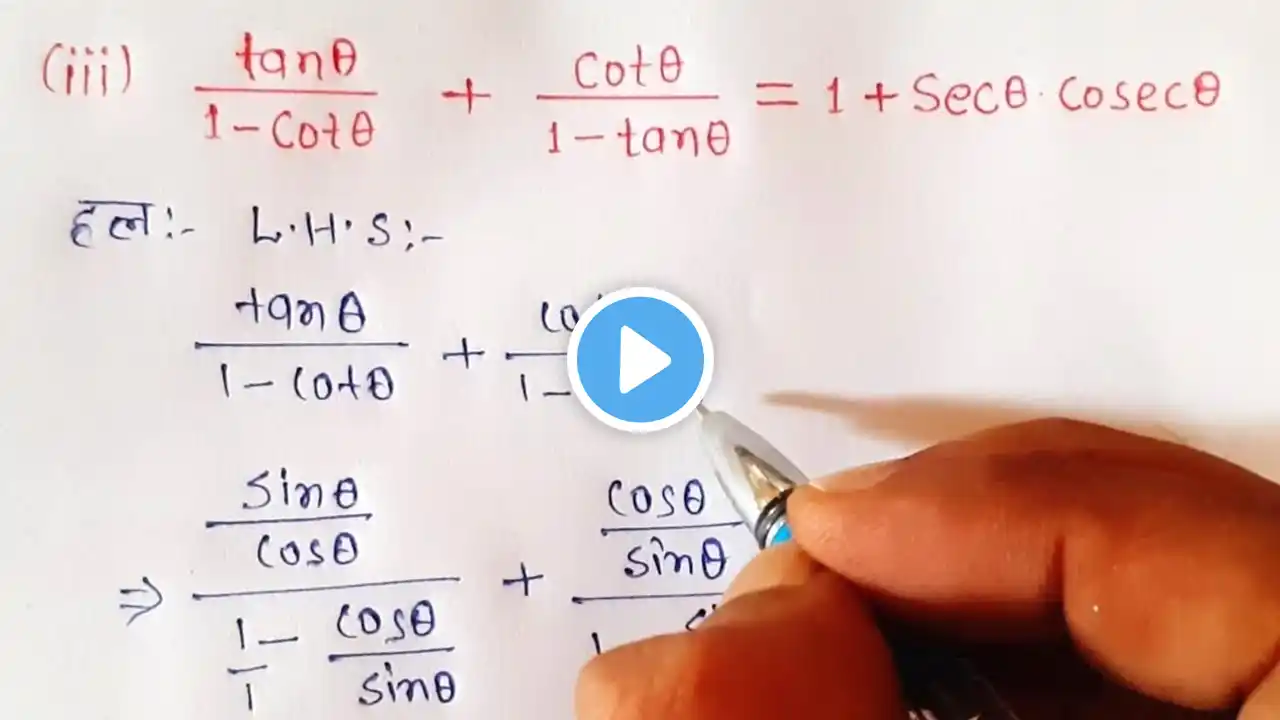 (iii) tanθ/1-Cotθ + Cotθ/1-tanθ = 1 + Secθ · Cosecθ
हल:- L.H.S:-
tanθ/1-Cotθ + /1-
⇒ sinθ/cosθ/1/1-cosθ/sinθ + cosθ/sinθ/1-